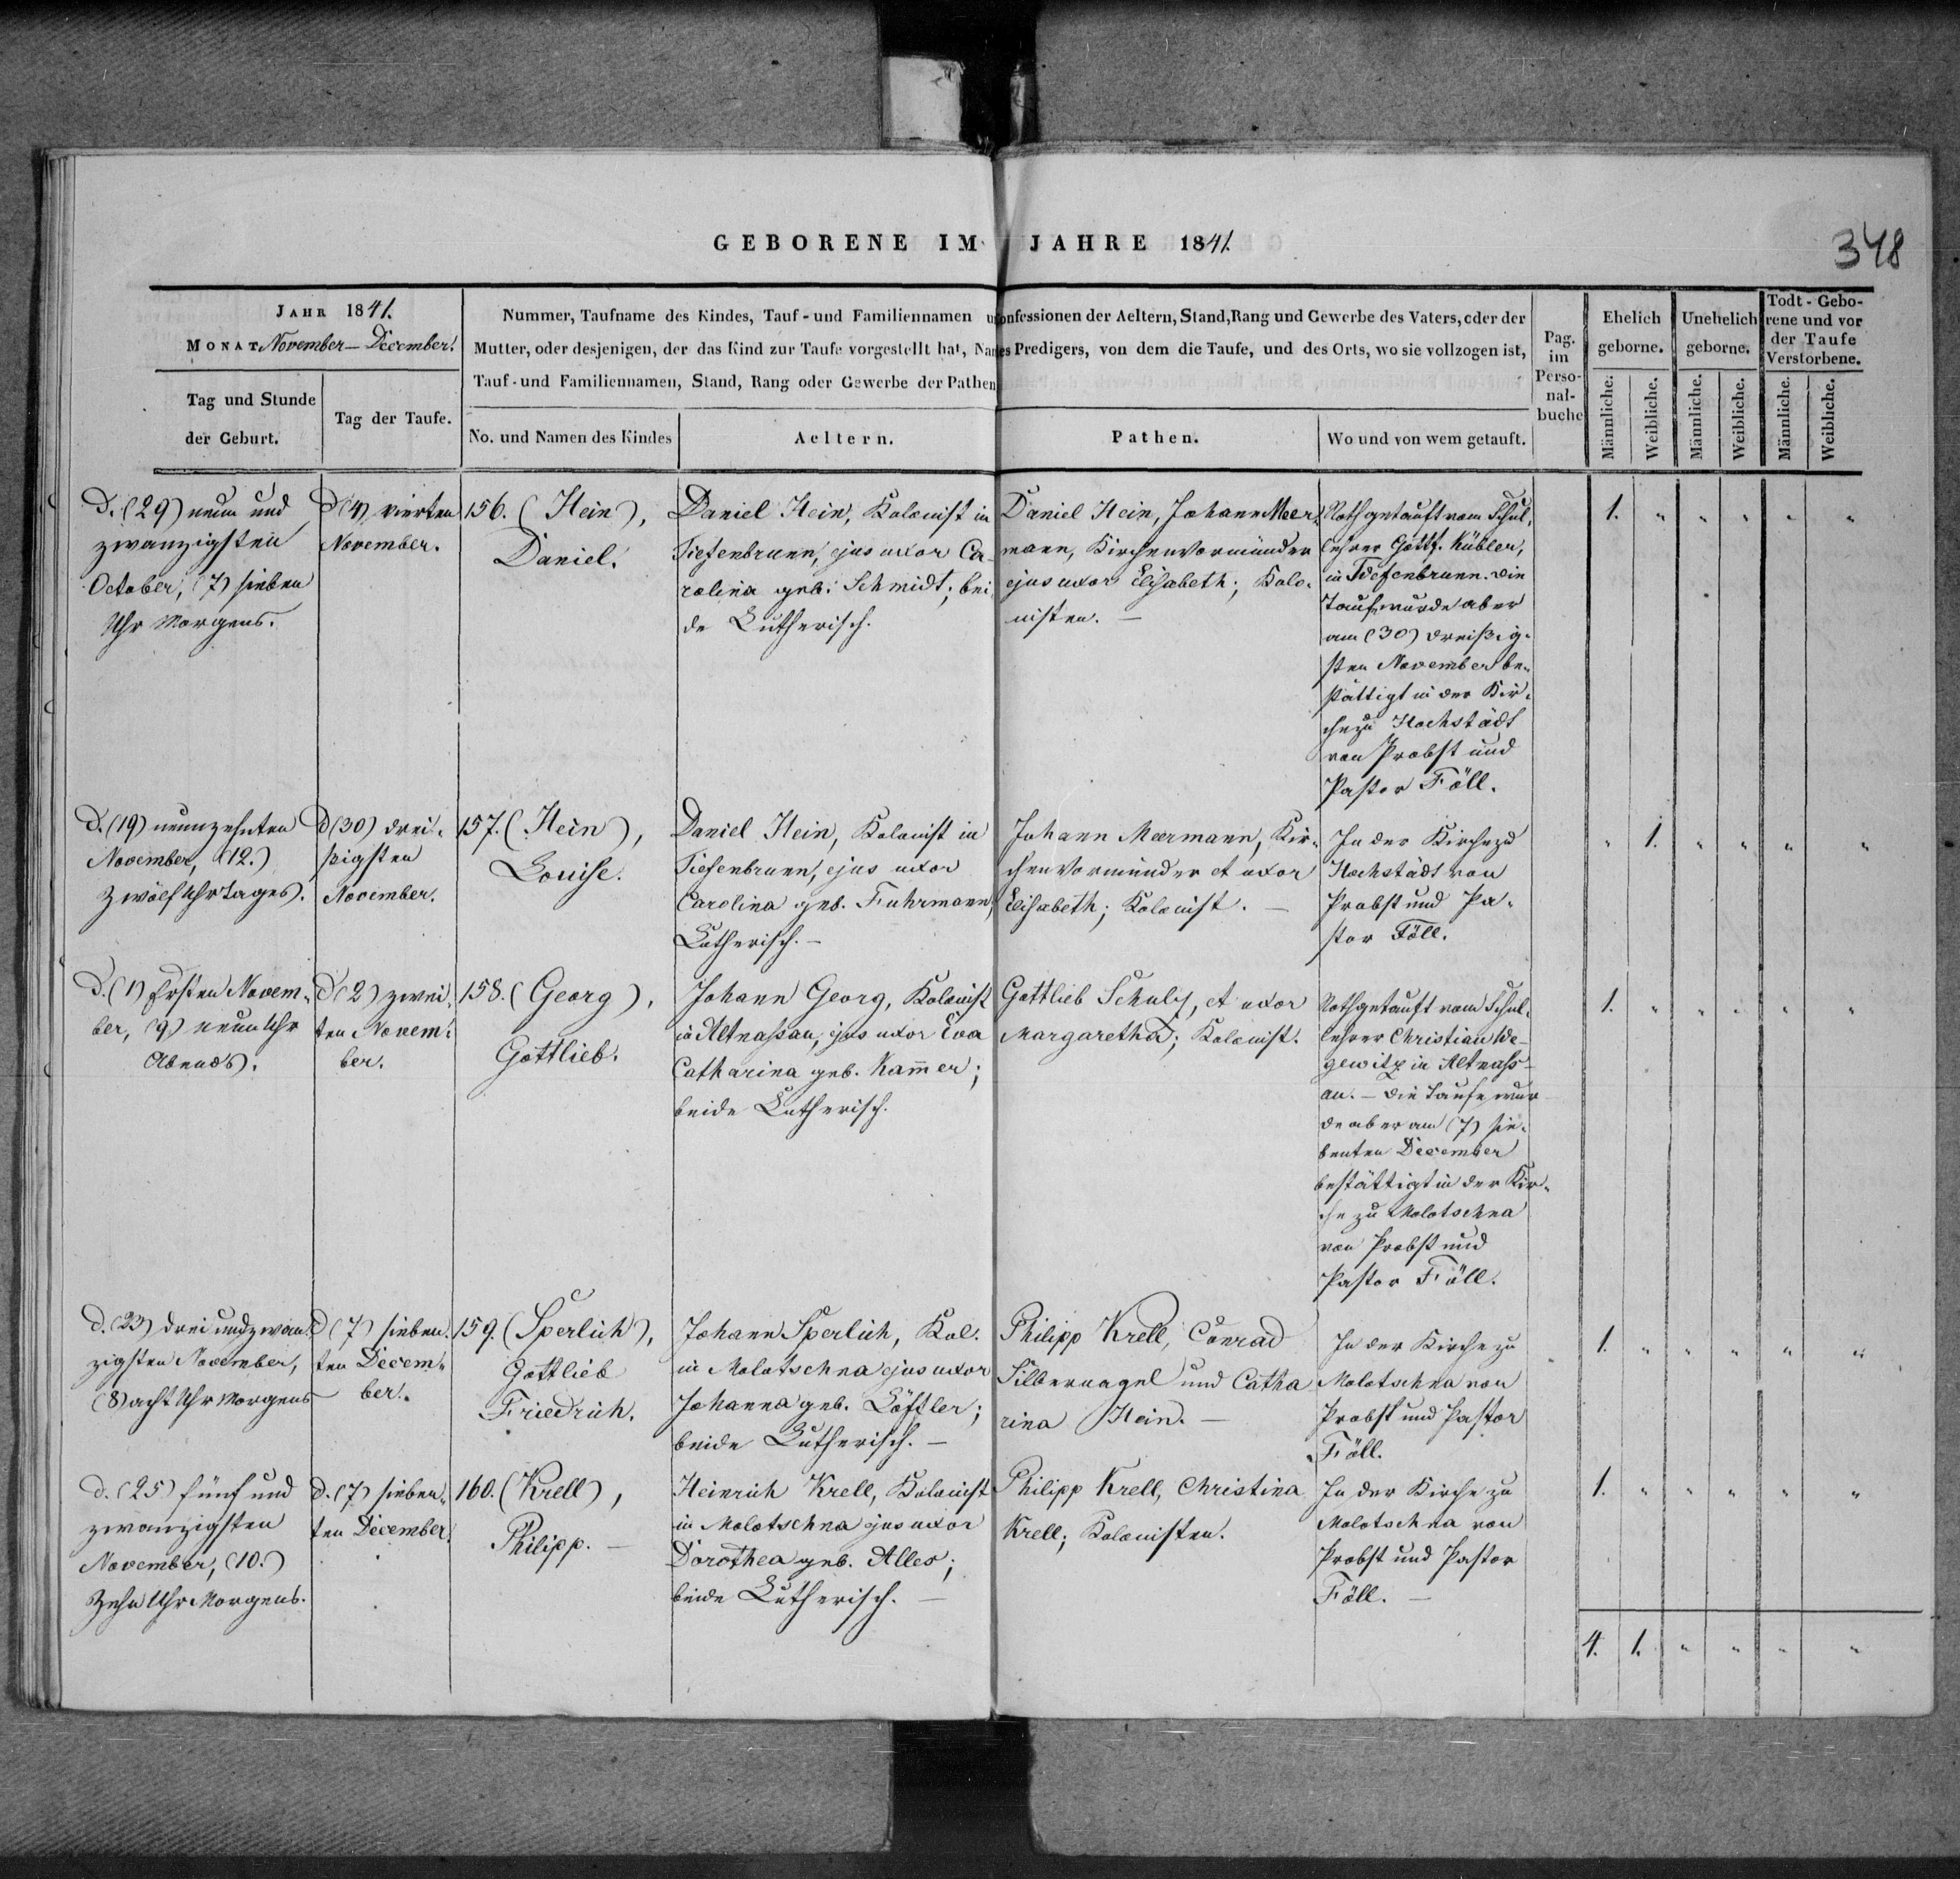 GEBORENE IM JAHRE 1841.
348
JAHR 1841.
MONAT November – December.
Tag und Stunde
der Geburt.
Tag der Taufe.
Nummer, Taufname des Kindes, Tauf- und Familiennamen u onfessionen der Aeltern, Stand, Rang und Gewerbe des Vaters, oder der
Mutter, oder desjenigen, der das Kind zur Taufe vorgestellt hat, Nam es Predigers, von dem die Taufe, und des Orts, wo sie vollzogen ist,
Tauf- und Familiennamen, Stand, Rang oder Gewerbe der Pathen
No. und Namen des Kindes
Aeltern.
Pathen.
Wo und von wem getauft.
Pag.
im
Perso-
nal-
buche
Ehelich
geborne.
Unehelich
geborne.
Todt-Gebo-
rene und vor
der Taufe
Verstorbene.
Männliche.
Weibliche.
Männliche.
Weibliche.
Männliche.
Weibliche.
D. (29) neun und
zwanzigsten
October, (7) sieben
Uhr Morgens.
D (4) vierten
November.
156. (Hein),
Daniel.
Daniel Hein, Kolonist in
Tiefenbrunn, ejus uxor Ca-
rolina geb. Schmidt; bei-
de Lutherisch.
Daniel Hein, Johann Meer-
mann, Kirchenvormünder
ejus uxor Elisabeth; Kolo-
nisten. –
Nothgetauft vom Schul-
lehrer Gottf. Kübler,
in Tiefenbrunn. Die
Taufe wurde aber
am (30) dreißig-
sten November be-
stättigt in der Kir-
che zu Hochstädt
von Probst und
Pastor Föll.
1. " " " " "
D. (19) neunzehnten
November, (12.)
zwölf Uhr Tages.
D (30) drei-
ßigsten
November.
157. (Hein),
Louise.
Daniel Hein, Kolonist in
Tiefenbrunn, ejus uxor
Carolina geb. Fuhrmann,
Lutherisch. –
Johann Meermann, Kir-
chenvormünder et uxor
Elisabeth; Kolonist. –
In der Kirche zu
Hochstädt von
Probst und Pa-
stor Föll.
" 1. " " " "
D. (1) Ersten Novem-
ber, (9) neun Uhr
Abends.
D (2) zwei-
ten Novem-
ber.
158. (Georg),
Gottlieb.
Johann Georg, Kolonist
in Altnassau, ejus uxor Eva
Catharina geb. Kam̅er;
beide Lutherisch.
Gottlieb Schulz, et uxor
Margaretha; Kolonist.
Nothgetauft vom Schul-
lehrer Christian We-
gewitz in Altnass-
au. – Die Taufe wur-
de aber am (7) sie-
benten December
bestättigt in der Kir-
che zu Molotschna
von Probst und
Pastor Föll.
1. " " " " "
D. (23) drei und zwan-
zigsten November,
(8) acht Uhr Morgens
D (7) sieben-
ten Decem-
ber.
159. (Sperlich),
Gottlieb
Friedrich.
Johann Sperlich, Kol.
in Molotschna ejus uxor
Johanna geb. Löffler;
beide Lutherisch. –
Philipp Krell, Conrad
Silbernagel und Catha
rina Hein. –
In der Kirche zu
Molotschna von
Probst und Pastor
Föll.
1. " " " " "
d. (25) fünf und
zwanzigsten
November, (10.)
Zehn Uhr Morgens.
d. (7) sieben-
ten December.
160. (Krell),
Philipp. –
Heinrich Krell, Kolonist
in Molotschna ejus uxor
Dorothea geb. Alles;
beide Lutherisch. –
Philipp Krell, Christina
Krell; Kolonisten.
In der Kirche zu
Molotschna von
Probst und Pastor
Föll. –
1. " " " " "
4. 1. " " " "